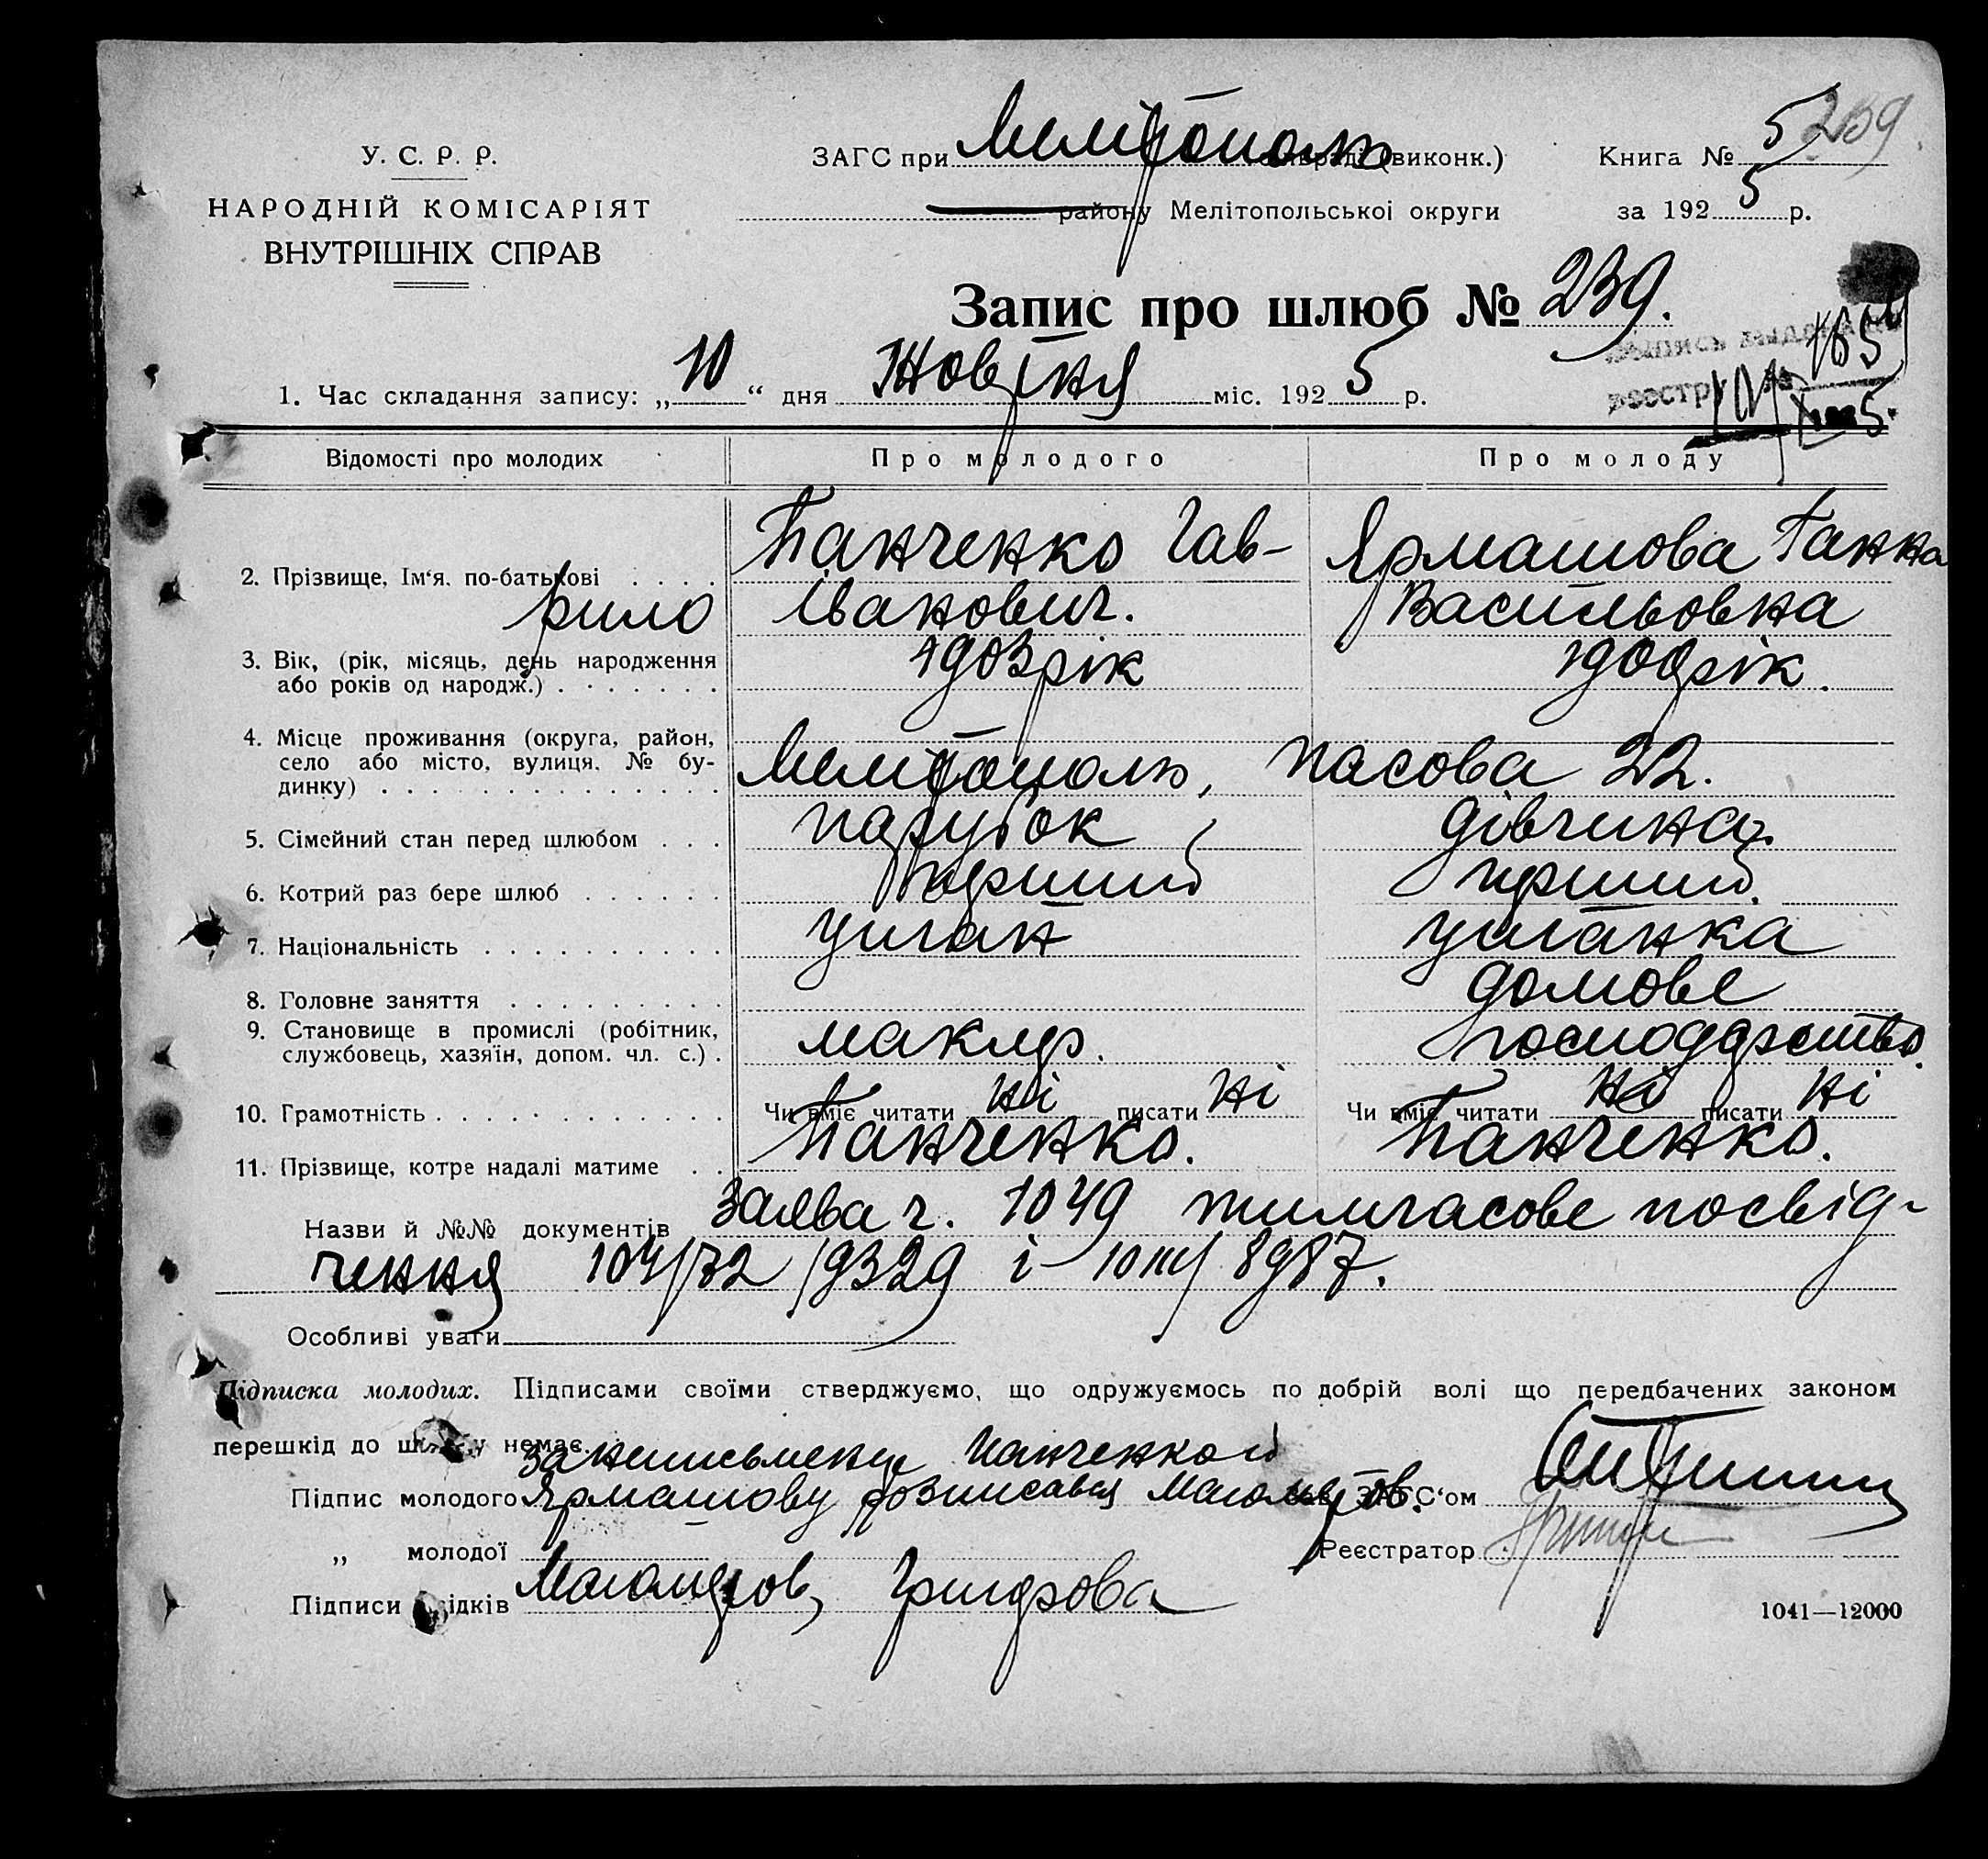 239
У. С. Р. Р.
НАРОДНІЙ КОМІСАРІЯТ
ВНУТРІШНІХ СПРАВ
ЗАГС при Мелітополь (виконк.)
району Мелітопольської округи
Книга № 5
за 1925 р.
Запис про шлюб № 239.
1. Час складання запису: „10“ дня Жовтня міс. 1925 р.
Відомості про молодих Про молодого Про молоду
2. Прізвище, Ім‘я, по-батькові . . . . Панченко Гав- Ярмашова Ганна
рило Іванович. Васильовна
3. Вік, (рік, місяць, день народження 1903 рік 1900 рік.
або років од народж.) . . . . . . .
4. Місце проживання (округа, район,
село або місто, вулиця, № бу- Мелітополь, пасова 22.
динку) . . . . . . . . . . . . . .
5. Сімейний стан перед шлюбом . . . парубок дівчина
6. Котрий раз бере шлюб . . . . . . перший перший.
7. Національність . . . . . . . . . . циган циганка
8. Головне заняття . . . . . . . . . домове
9. Становище в промислі (робітник, маклер. господарство.
службовець, хазяїн, допом. чл. с.) .
10. Грамотність . . . . . . . . . . . . Чи вміє читати ні писати ні Чи вміє читати ні писати ні
11. Прізвище, котре надалі матиме . . Панченко. Панченко.
Назви й №№ документів заява ч. 1049 тимчасове посвід-
чення 8987.
Особливі уваги
Підписка молодих. Підписами своїми стверджуємо, що одружуємось по добрій волі що передбачених законом
перешкід до шлюбу немає.
Підпис молодого Ярмашову розписався ЗАГС‘ом
„ молодої Реєстратор
Підписи свідків
1041—12000